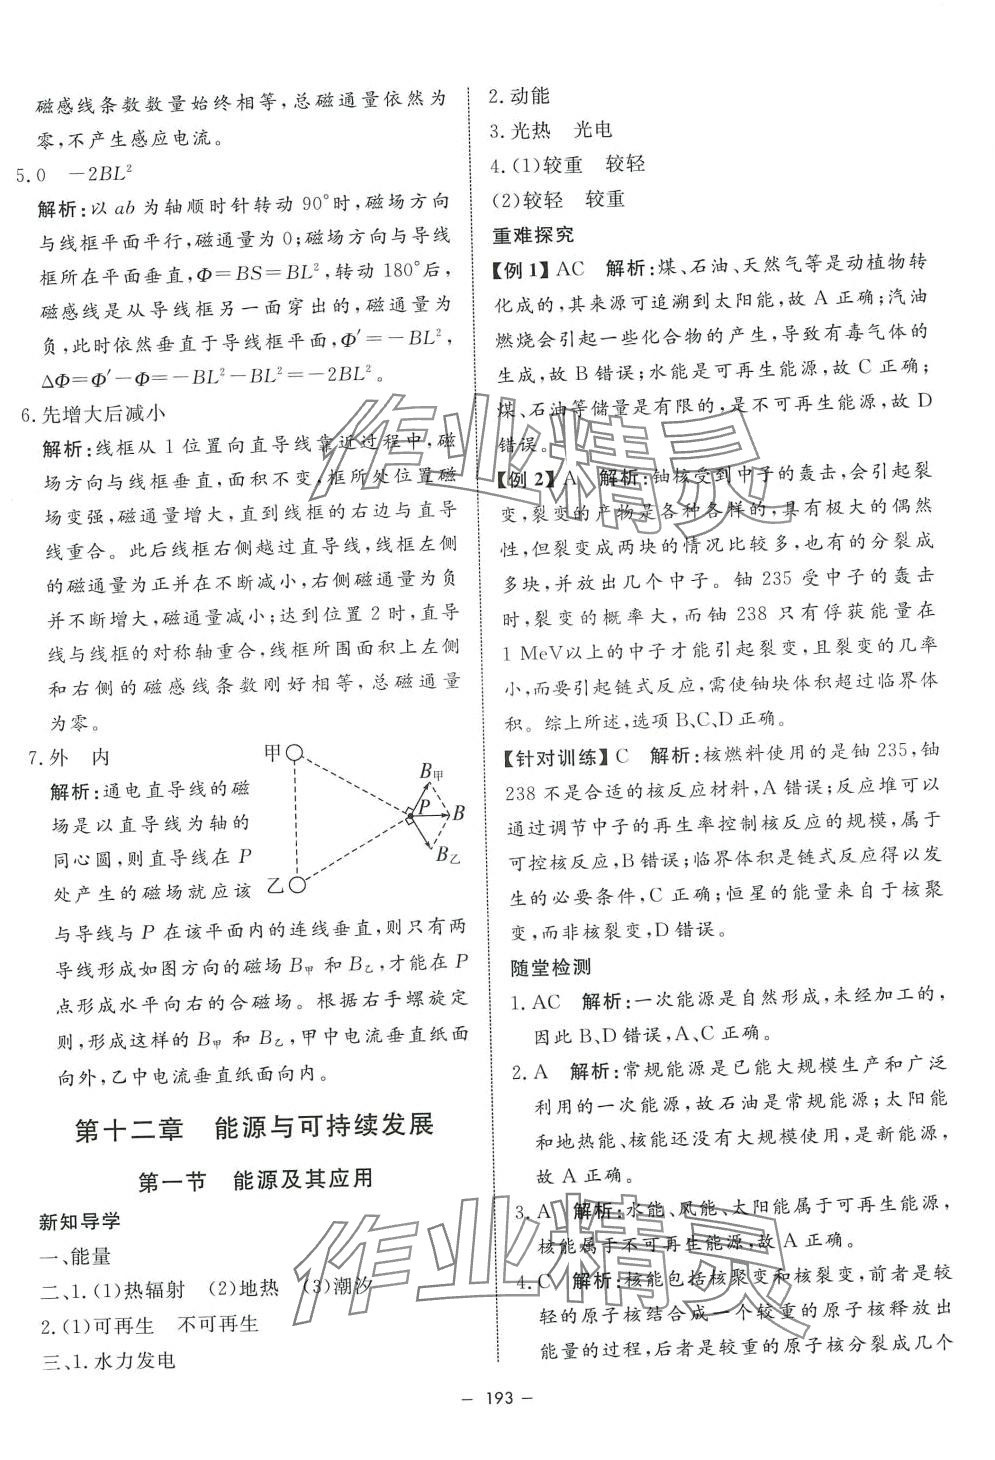 磁感线条数数量始终相等,总磁通量依然为
零,不产生感应电流。
5.0 －2BL²
解析:以 ab 为轴顺时针转动 90°时,磁场方向
与线框平面平行,磁通量为 0;磁场方向与导线
框所在平面垂直,Φ＝BS＝BL²,转动 180°后,
磁感线是从导线框另一面穿出的,磁通量为
负,此时依然垂直于导线框平面,Φ′＝－BL²,
ΔΦ＝Φ′－Φ＝－BL²－BL²＝－2BL²。
6.先增大后减小
解析:线框从 1 位置向直导线靠近过程中,磁
场方向与线框垂直,面积不变,框所处位置磁
场变强,磁通量增大,直到线框的右边与直导
线重合。此后线框右侧越过直导线,线框左侧
的磁通量为正并在不断减小,右侧磁通量为负
并不断增大,磁通量减小;达到位置 2 时,直导
线与线框的对称轴重合,线框所围面积上左侧
和右侧的磁感线条数刚好相等,总磁通量
为零。
7.外 内
解析:通电直导线的磁
场是以直导线为轴的
同心圆,则直导线在 P
处产生的磁场就应该
甲
乙
B甲
P
B
B乙
与导线与 P 在该平面内的连线垂直,则只有两
导线形成如图方向的磁场 B甲 和 B乙,才能在 P
点形成水平向右的合磁场。根据右手螺旋定
则,形成这样的 B甲 和 B乙,甲中电流垂直纸面
向外,乙中电流垂直纸面向内。
第十二章 能源与可持续发展
第一节 能源及其应用
新知导学
一、能量
二、1.(1)热辐射 (2)地热 (3)潮汐
2.(1)可再生 不可再生
三、1.水力发电
2.动能
3.光热 光电
4.(1)较重 较轻
(2)较轻 较重
重难探究
【例 1】AC 解析:煤、石油、天然气等是动植物转
化成的,其来源可追溯到太阳能,故 A 正确;汽油
燃烧会引起一些化合物的产生,导致有毒气体的
生成,故 B 错误;水能是可再生能源,故 C 正确;
煤、石油等储量是有限的,是不可再生能源,故 D
错误。
【例 2】A 解析:铀核受到中子的轰击,会引起裂
变,裂变的产物是各种各样的,具有极大的偶然
性,但裂变成两块的情况比较多,也有的分裂成
多块,并放出几个中子。铀 235 受中子的轰击
时,裂变的概率大,而铀 238 只有俘获能量在
1 MeV以上的中子才能引起裂变,且裂变的几率
小,而要引起链式反应,需使铀块体积超过临界体
积。综上所述,选项 B、C、D 正确。
【针对训练】C 解析:核燃料使用的是铀 235,铀
238 不是合适的核反应材料,A 错误;反应堆可以
通过调节中子的再生率控制核反应的规模,属于
可控核反应,B 错误;临界体积是链式反应得以发
生的必要条件,C 正确;恒星的能量来自于核聚
变,而非核裂变,D 错误。
随堂检测
1.AC 解析:一次能源是自然形成,未经加工的,
因此 B、D 错误,A、C 正确。
2.A 解析:常规能源是已能大规模生产和广泛
利用的一次能源,故石油是常规能源;太阳能
和地热能、核能还没有大规模使用,是新能源,
故 A 正确。
3.A 解析:水能、风能、太阳能属于可再生能源,
核能属于不可再生能源,故 A 正确。
4.C 解析:核能包括核聚变和核裂变,前者是较
轻的原子核结合成一个较重的原子核释放出
能量的过程,后者是较重的原子核分裂成几个
－ 193 －
作业精灵
作业精灵